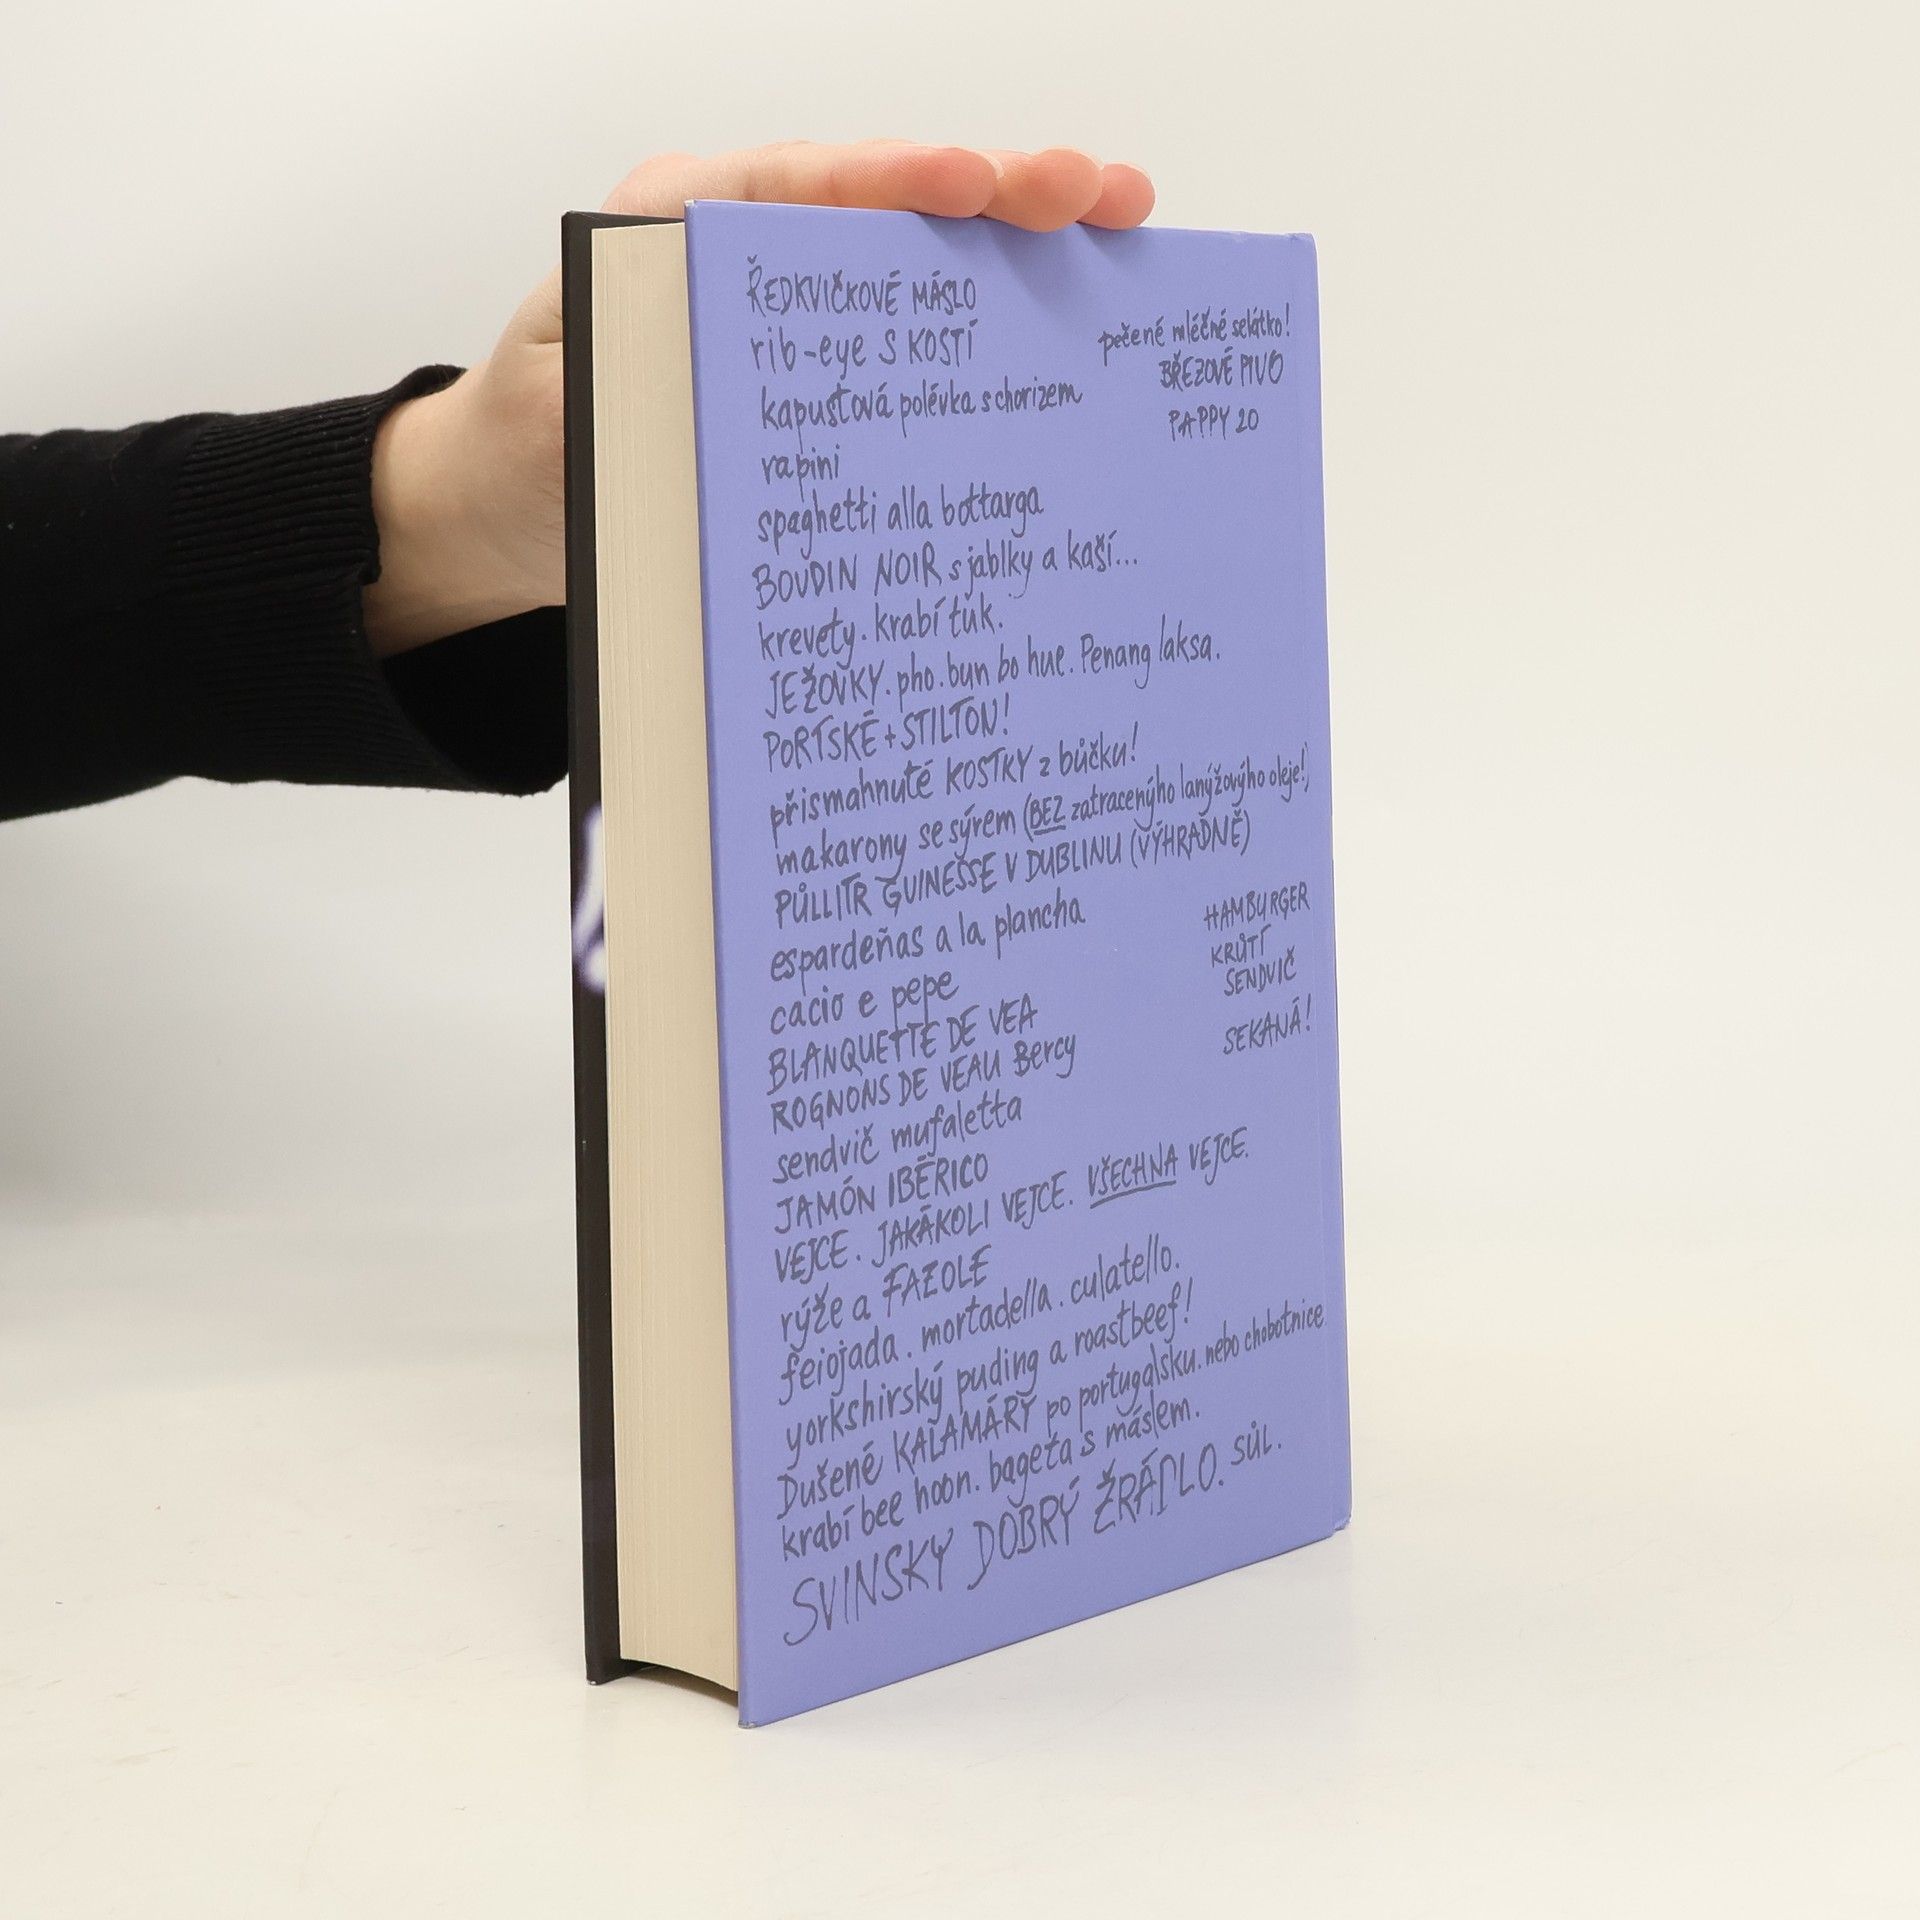 ŘEDKVIČKOVÉ MÁSLO
rib-eye S KOSTÍ
pečené mléčné selátko!
BŘEZOVÉ PIVO
PAPPY 20
kapustová polévka s chorizem
rapini
spaghetti alla bottarga
BOUDIN NOIR s jablky a kaší...
krevety. krabí tuk.
JEŽOVKY. pho. bun bo hue. Penang laksa.
PORTSKÉ + STILTON!
přismahnuté KOSTKY z bůčku!
makarony se sýrem (BEZ zatracenýho lanýžovýho oleje!)
PŮLLITR GUINESSE V DUBLINU (VÝHRADNĚ)
espardeñas a la plancha
cacio e pepe
HAMBURGER
KRŮTÍ
SENDVIČ
SEKANÁ!
BLANQUETTE DE VEA
ROGNONS DE VEAU Bercy
sendvič mufaletta
JAMÓN IBÉRICO
VEJCE. JAKÁKOLI VEJCE. VŠECHNA VEJCE.
rýže a FAZOLE
feiojada. mortadella. culatello.
yorkshirský puding a roastbeef!
Dušené KALAMÁRY po portugalsku. nebo chobotnice
krabí bee hoon. bageta s máslem.
SVINSKY DOBRÝ ŽRÁDLO. SŮL.